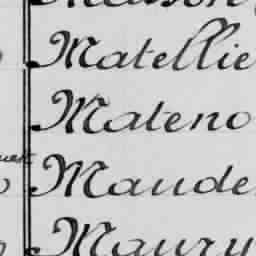 Matellie
Mateno
Maude
Maury